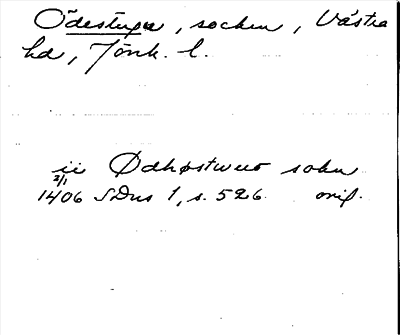 Ödestugu, socken, Västra
hd, Jönk. l.
ii Ødhøstwuo sokn
2/1
1406 SDns 1, s. 526 orig.